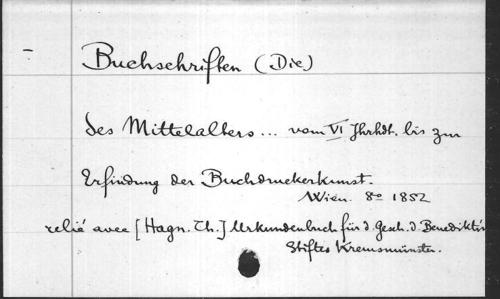 Buchschriften (Die)
des Mittelalters ... vom VI Jhrhdt. bis zur
Erfindung der Buchdruckerkunst.
Wien. 8º 1852
relié avec [Hagn. Th.] Urkundenbuch für d. Gesch. d. Benediktin
Stiftes Kremsmünster.